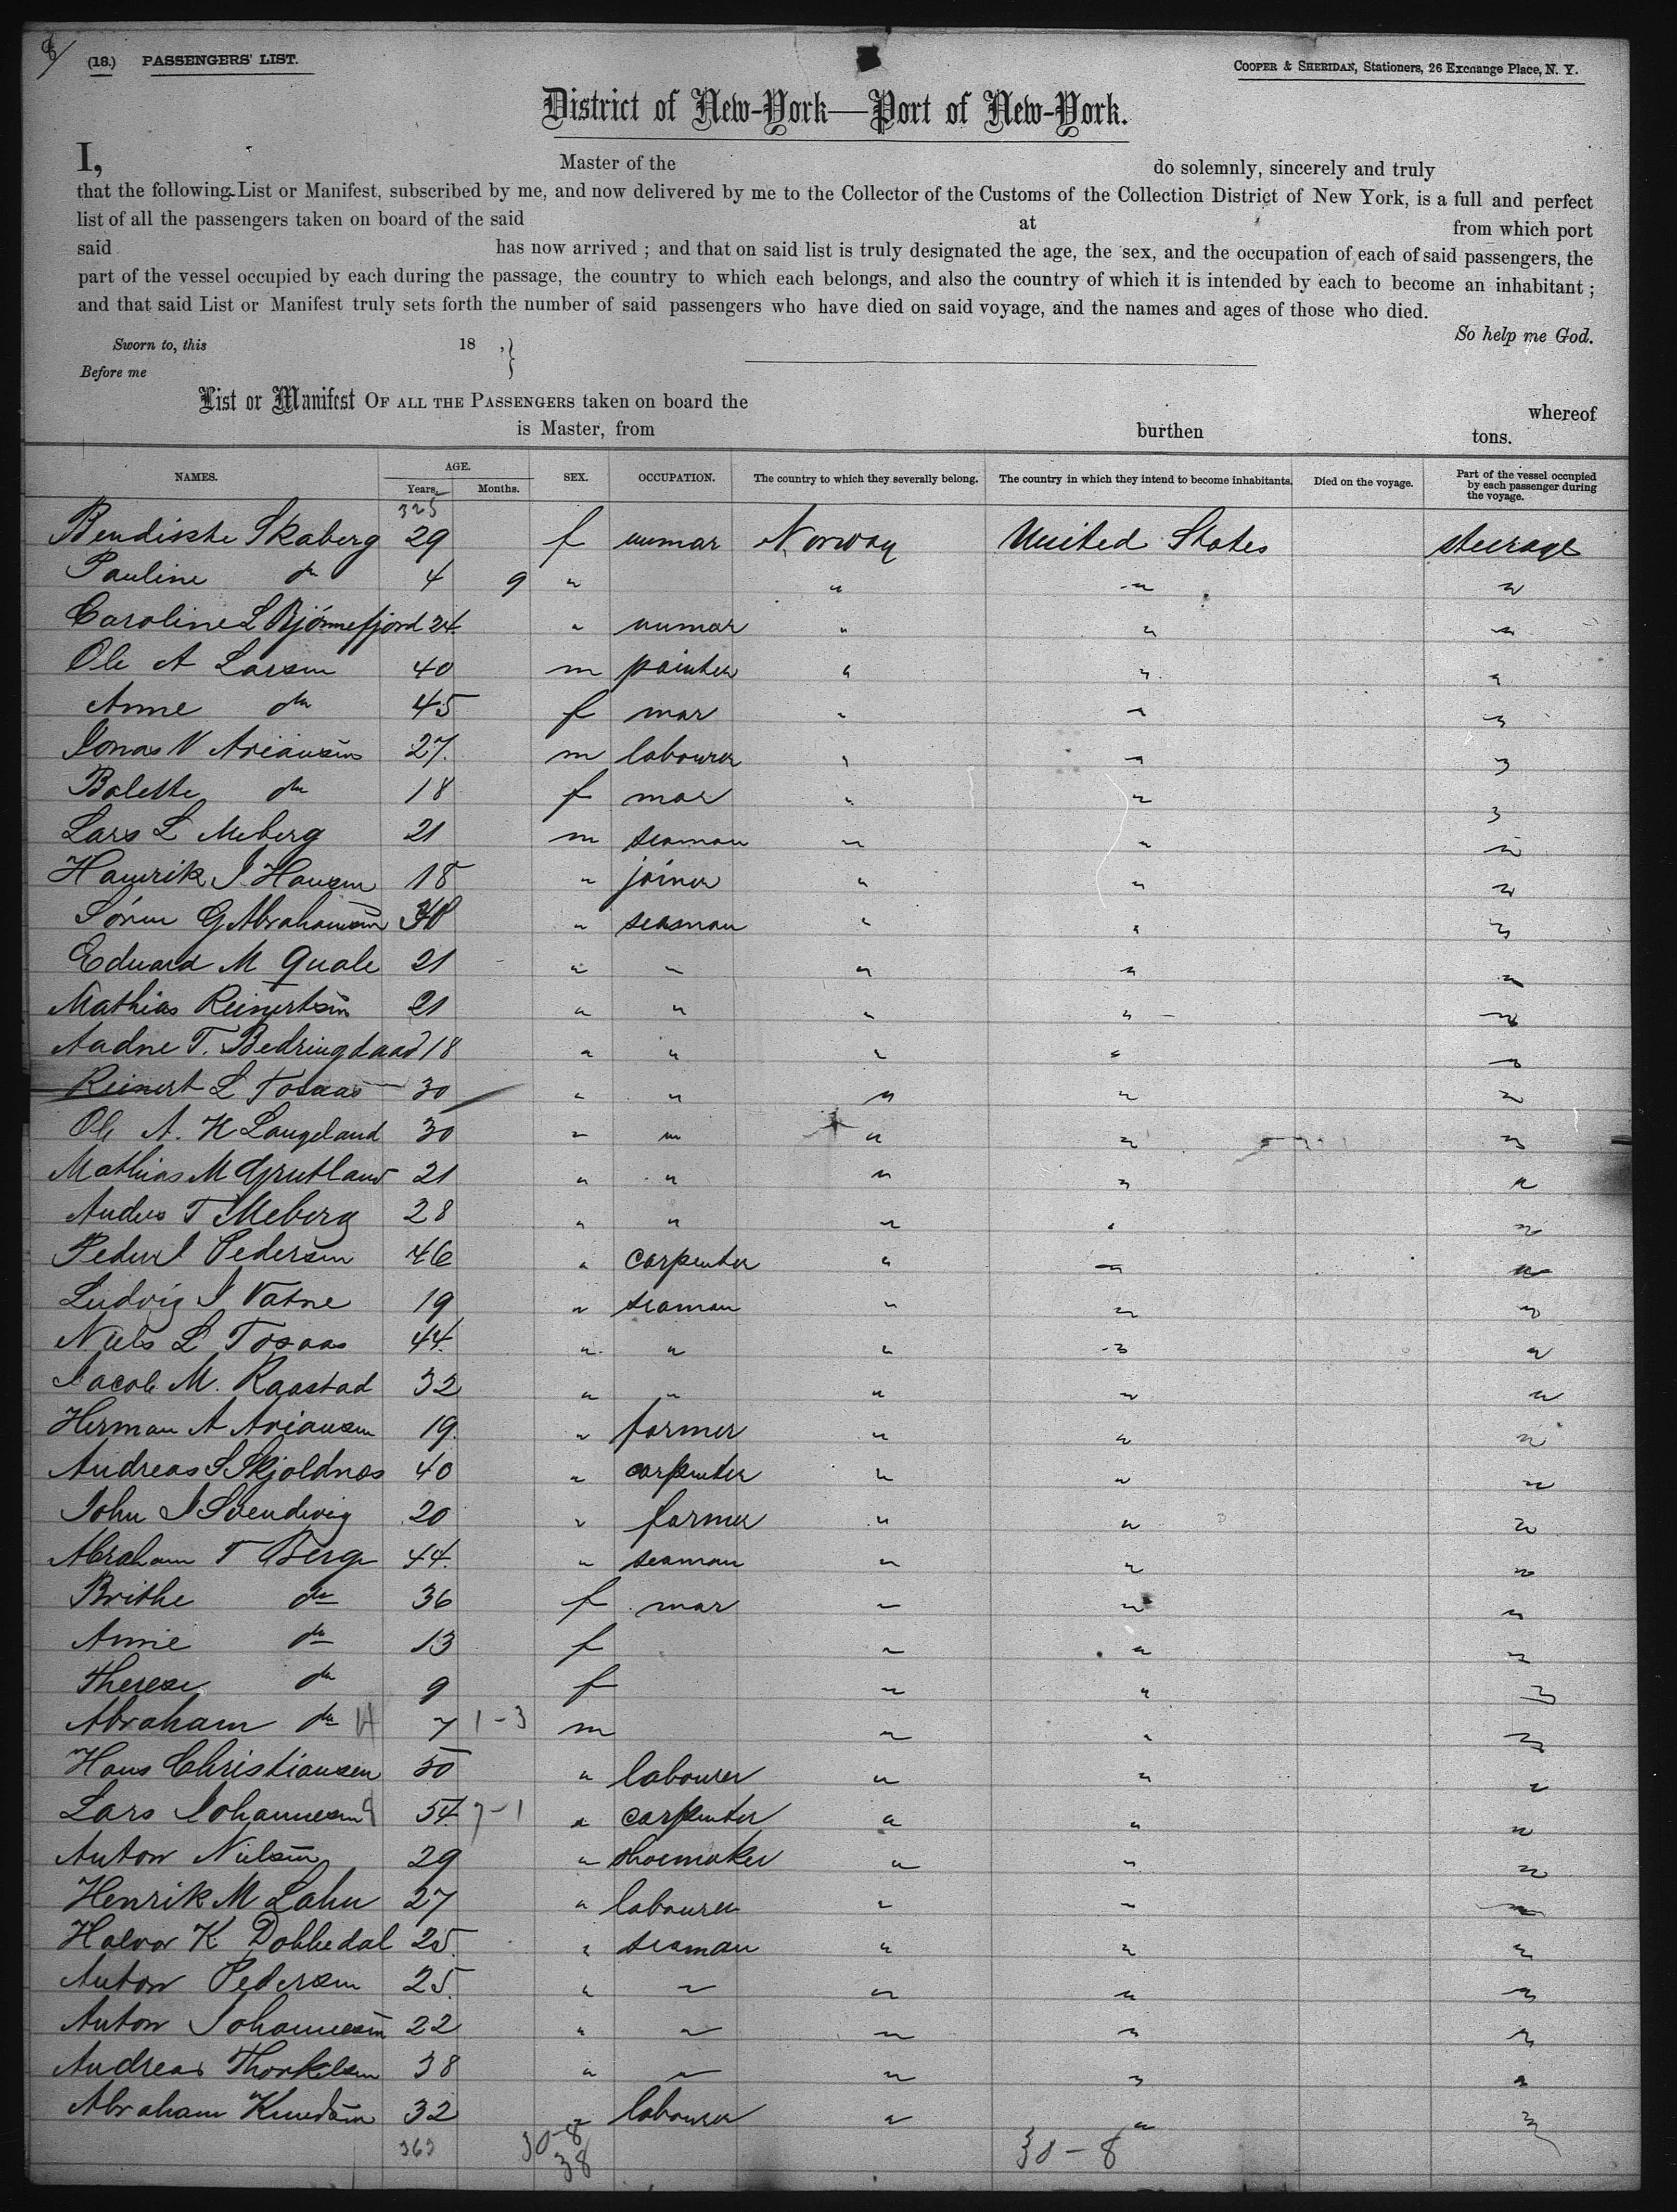 (18.) PASSENGERS' LIST.
COOPER & SHERIDAN, Stationers, 26 Exchange Place, N. Y.
District of New-York—Port of New-York.
I, Master of the do solemnly, sincerely and truly
that the following List or Manifest, subscribed by me, and now delivered by me to the Collector of the Customs of the Collection District of New York, is a full and perfect
list of all the passengers taken on board of the said at from which port
said has now arrived ; and that on said list is truly designated the age, the sex, and the occupation of each of said passengers, the
part of the vessel occupied by each during the passage, the country to which each belongs, and also the country of which it is intended by each to become an inhabitant ;
and that said List or Manifest truly sets forth the number of said passengers who have died on said voyage, and the names and ages of those who died.
So help me God.
Sworn to, this 18 , }
Before me
List or Manifest OF ALL THE PASSENGERS taken on board the whereof
is Master, from burthen tons.
NAMES. AGE. Years. Months. SEX. OCCUPATION. The country to which they severally belong. The country in which they intend to become inhabitants. Died on the voyage. Part of the vessel occupied by each passenger during the voyage.
325
Bendikte Skaberg 29 f unmar Norway United States steerage
Pauline do 4 9 " " " "
Caroline L Bjönnefjord 24 " unmar " " "
Ole A Larsen 40 m painter " " "
Anne do 45 f mar " " "
Jonas V Ariansen 27 m labourer " " "
Bolette do 18 f mar " " "
Lars L Meberg 21 m seaman " " "
Hamrik J Hansen 18 " joiner " " "
Sören G Abrahamsen " seaman " " "
Eduard M Quale 21 " " " " "
Mathias Reinertsen 21 " " " " "
Aadne T. Bedringdaad 18 " " " " "
Reinert L Tosaas 30 " " " " "
Ole A. K Langeland 30 " " " " "
Mathias M Grutland 21 " " " " "
Anders T Meberg 28 " " " " "
Peder J Pedersen 46 " carpenter " " "
Ludvig J Vatne 19 " seaman " " "
Niels L Tosaas 44 " " " " "
Jacob M. Raastad 32 " " " " "
Herman A Ariansen 19 " farmer " " "
Andreas S Skjoldnes 40 " carpenter " " "
John J Svendvig 20 " farmer " " "
Abraham T Berge 44 " seaman " " "
Brithe do 36 f mar " " "
Annie do 13 f " " "
Therese do 9 f " " "
Abraham do 7 1-3 m " " "
Hans Christiansen 50 " labourer " " "
Lars Johannesen 54 7-1 " carpenter " " "
Anton Nielsen 29 " shoemaker " " "
Henrik M Lahn 27 " labourer " " "
Halvor K Dobbedal 25 " seaman " " "
Anton Pedersen 25 " " " " "
Anton Johannesen 22 " " " " "
Andreas Thorkelsen 38 " " " " "
Abraham Knudsen 32 " labourer " " "
363 30-8 30-8
38